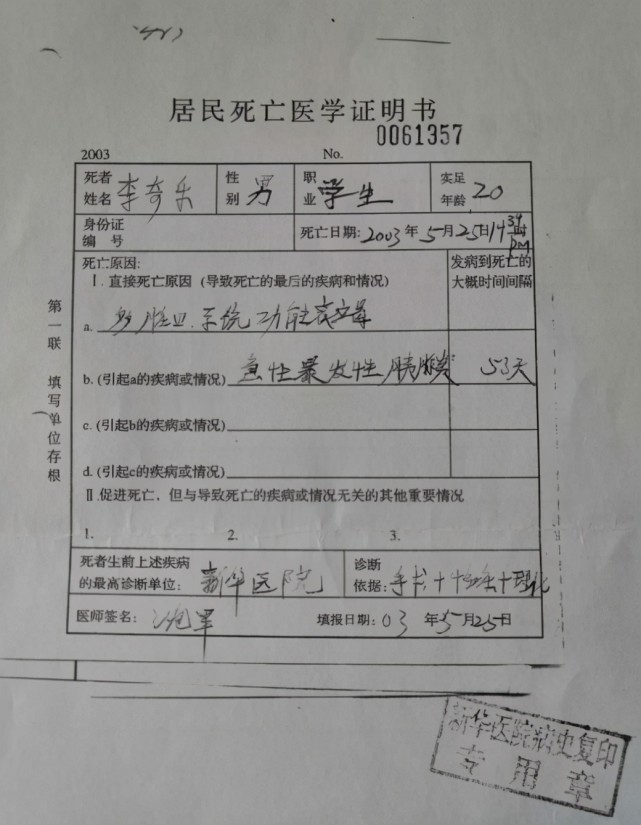 居民死亡医学证明书
0061357
2003 No.
死者姓名 李奇乐 性别 男 职业 学生 实足年龄 20
身份证编号 死亡日期: 2003年5月25日14 34时 PM
死亡原因: 发病到死亡的大概时间间隔
I. 直接死亡原因 (导致死亡的最后的疾病和情况)
a. 多脏器系统功能衰竭
b. (引起a的疾病或情况) 急性暴发性胰腺炎 53天
c. (引起b的疾病或情况)
d. (引起c的疾病或情况)
II 促进死亡、但与导致死亡的疾病或情况无关的其他重要情况
1. 2. 3.
死者生前上述疾病的最高诊断单位: 新华医院 诊断依据: 手术+ +理化
医师签名: 填报日期: 03 年5月25日
第一联 填写单位存根
新华医院病史复印
专用章